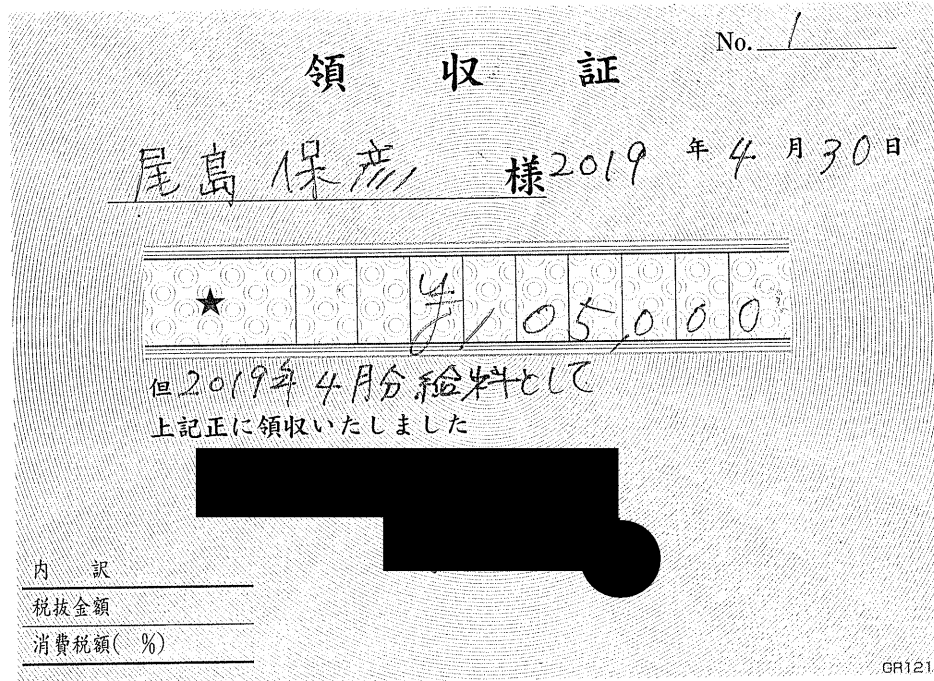 No. 1
領収証
尾島 保彦 様 2019年4月30日
★ ¥105,000
但 2019年4月分給料として
上記正に領収いたしました
内訳
税抜金額
消費税額( %)
GR121